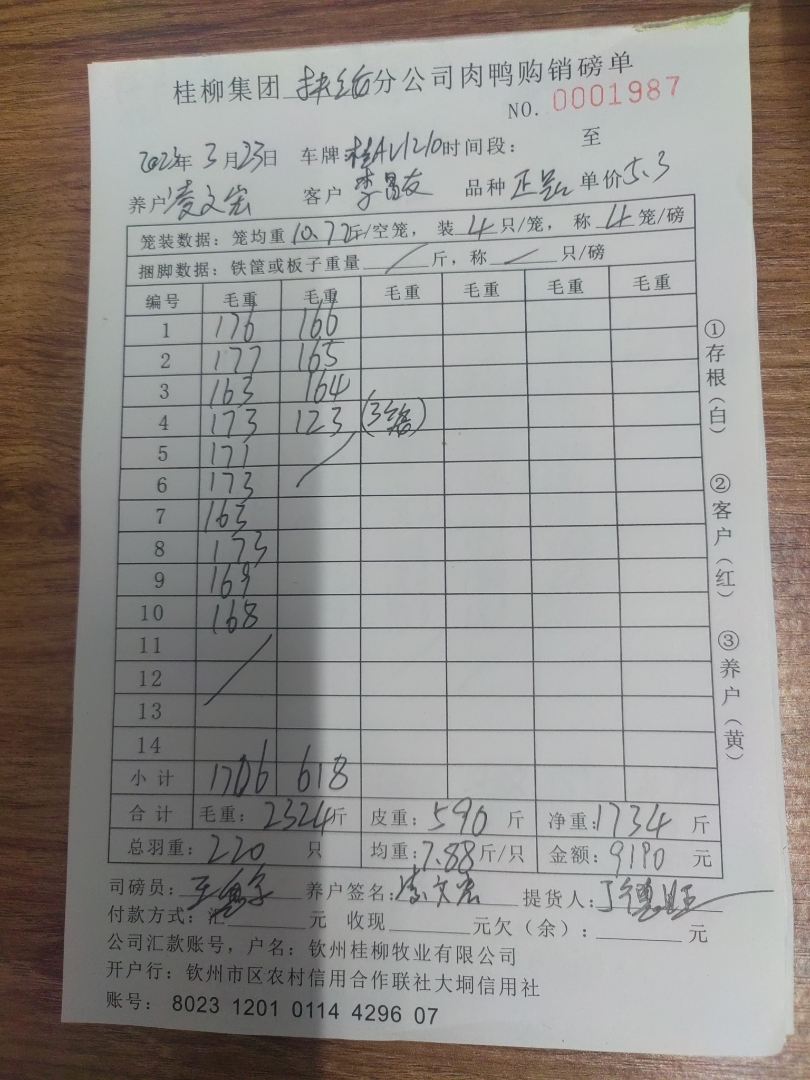 桂柳集团扶绥分公司肉鸭购销磅单
NO. 0001987
2023年3月23日 车牌桂AV1210时间段： 至
养户凌文宏 客户李昌友 品种正品 单价5.3
笼装数据：笼均重10.72斤/空笼，装4只/笼，称4笼/磅
捆脚数据：铁筐或板子重量／斤，称—只/磅
编号 毛重 毛重 毛重 毛重 毛重 毛重
1 176 166
2 177 165
3 163 164
4 173 123 (3笼)
5 171
6 173
7 163
8 173
9 169
10 168
11
12
13
14
小计 1706 618
合计 毛重：2324斤 皮重：590斤 净重：1734斤
总羽重：220只 均重：7.88斤/只 金额：9190元
司磅员： 养户签名：凌文宏 提货人：
付款方式：汇 元 收现 元欠（余）： 元
公司汇款账号，户名：钦州桂柳牧业有限公司
开户行：钦州市区农村信用合作联社大垌信用社
账号：8023 1201 0114 4296 07
①存根（白）
②客户（红）
③养户（黄）